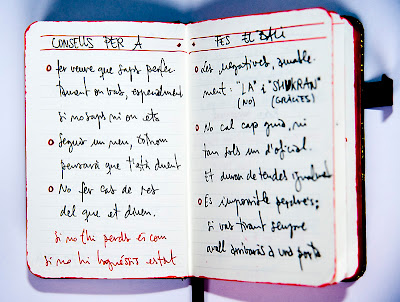 CONSELLS PER A
fer veure que saps perfec-
tament on vas, especialment
si no saps ni on ets
Seguir un nen, tothom
pensarà que t'està duent
No fer cas de res
del que et diuen.
Si no t'hi perds és com
si no hi haguéssis estat
FES EL
és negatives, amable-
ment: "LA" i "SHUKRAN"
(NO) (GRÀCIES)
No cal cap guia, ni
tan sols un d'oficial.
Et duran de tendes igualment
És impossible perdre's:
si vas tirant sempre
avall arribaràs a una porta